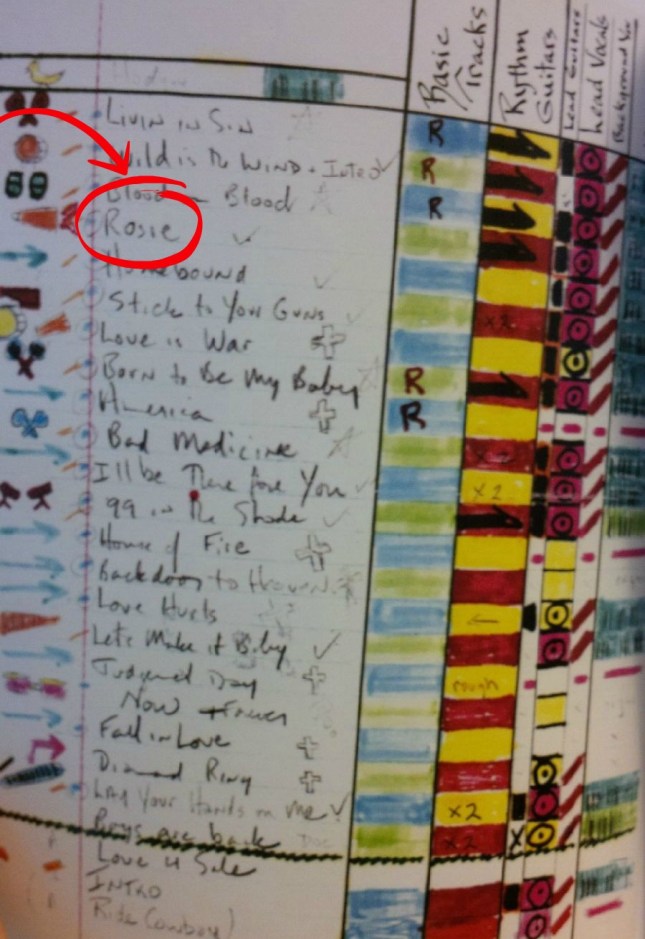 Basic Tracks
Rythm Guitars
Lead Guitars
Lead Vocals
Background Vo
Livin in Sin R
Wild is the Wind + Intro R
Blood Blood R
Rosie
Homebound
Stick to Your Guns x2
Love is War
Born to Be My Baby R
America R
Bad Medicine x2
I'll be There fore You x2
99 in the Shade
House of Fire
Backdoor to Heaven
Love Hurts
Let's Make it Baby
Judgment Day rough
Now + Forever
Fall in Love
Diamond Ring
Lay Your Hands on me x2
Boys are back x2 X
Love 4 Sale
INTRO
Ride Cowboy)